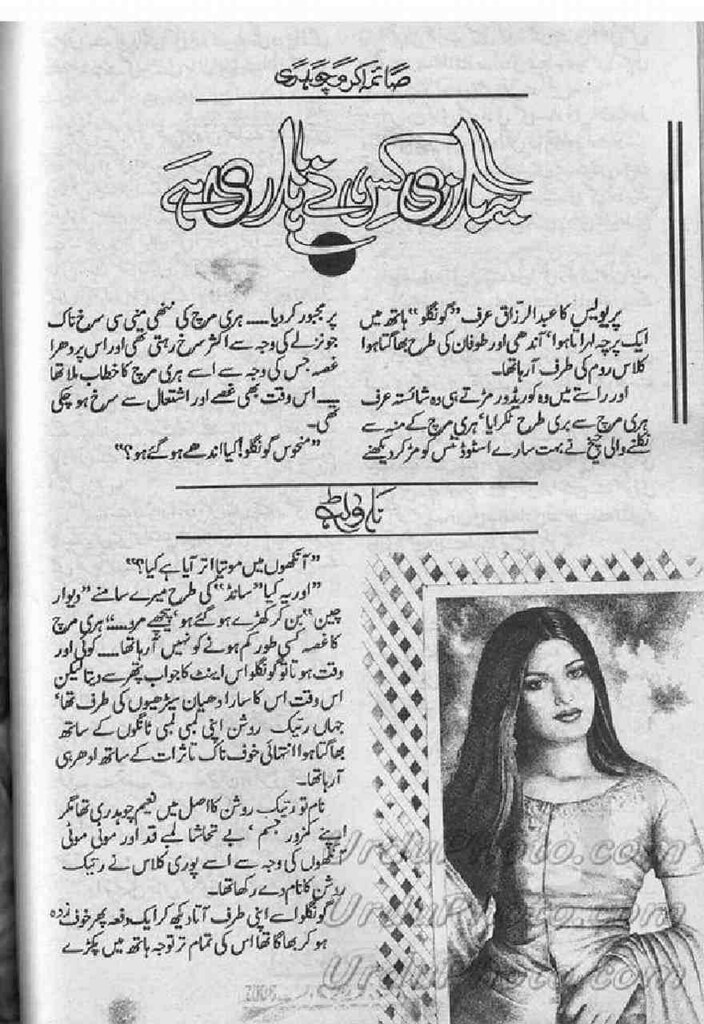 صائمہ اکرم چوہدری
یہ بازی کس نے ہاری ہے
پریولیس کا عبدالرزاق عرف "گونگلو" ہاتھ میں
ایک پرچہ لہراتا ہوا' آندھی اور طوفان کی طرح بھاگتا ہوا
کلاس روم کی طرف آرہا تھا۔
اور راستے میں وہ کوریڈور مڑتے ہی وہ شائستہ عرف
ہری مرچ سے بری طرح ٹکرایا' ہری مرچ کے منہ سے
نکلنے والی چیخ نے بہت سارے اسٹوڈنٹس کو مڑ کر دیکھنے
پر مجبور کردیا۔۔۔۔ ہری مرچ کی ننھی منی سی سرخ ناک
جو نزلے کی وجہ سے اکثر سرخ رہتی تھی اور اس پر دھرا
غصہ جس کی وجہ سے اسے ہری مرچ کا خطاب ملا تھا
۔۔۔۔ اس وقت بھی غصے اور اشتعال سے سرخ ہو چکی
تھی۔
"منحوس گونگلو! کیا اندھے ہو گئے ہو؟"
ناولٹ
"آنکھوں میں موتیا اتر آیا ہے کیا؟"
"اور یہ کیا "سانڈ" کی طرح میرے سامنے "دیوار
چین" بن کر کھڑے ہو گئے ہو' پیچھے مرو۔۔۔۔" ہری مرچ
کا غصہ کسی طور کم ہونے کو نہیں آرہا تھا۔۔۔۔ کوئی اور
وقت ہوتا تو گونگلو اس اینٹ کا جواب پتھر سے دیتا لیکن
اس وقت اس کا سارا دھیان سیڑھیوں کی طرف تھا'
جہاں رتیک روشن اپنی لمبی لمبی ٹانگوں کے ساتھ
بھاگتا ہوا انتہائی خوف ناک تاثرات کے ساتھ ادھر ہی
آرہا تھا۔
نام تو رتیک روشن کا اصل میں نعیم چوہدری تھا مگر
اپنے کمزور جسم' بے تحاشا لمبے قد اور موٹی موٹی
آنکھوں کی وجہ سے اسے پوری کلاس نے رتیک
روشن کا نام دے رکھا تھا۔
گونگلو اسے اپنی طرف آتا دیکھ کر ایک دفعہ پھر خوف زدہ
ہو کر بھاگا تھا اس کی تمام تر توجہ ہاتھ میں پکڑے
UrduPhoto.com
UrduPhoto.com
UrduPhoto.com